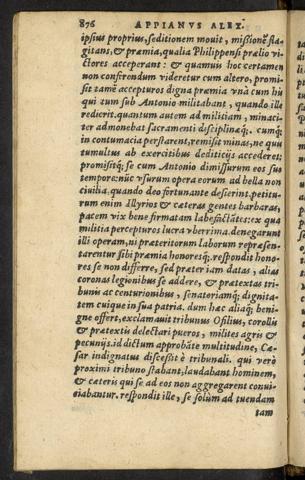 876 APPIANVS ALEX.
ipsius proprius, seditionem mouit, missionē fla-
gitans, & præmia, qualia Philippensi prælio vi-
ctores acceperant: & quamuis hoc certamen
non conferendum videretur cum altero, promi-
sit tamē accepturos digna præmia vnà cum his
qui tum sub Antonio militabant, quando ille
redierit. quantum autem ad militiam, minaci-
ter admonebat sacramenti disciplinæq;. cumq;
in contumacia perstarent, remisit minas, ne quis
tumultus ab exercitibus dediticijs accederet:
promisitq; se cum Antonio dimissurum eos suo
tempore: nūc vsurum opera eorum ad bella non
ciuilia. quando deo fortunante desierint, petitu-
rum enim Illyrios & cæteras gentes barbaras,
pacem vix bene firmatam labefactātes: ex qua
militia percepturos lucra vberrima. denegarunt
illi operam, ni præteritorum laborum repræsen-
tarentur sibi præmia honoresq;. respondit hono-
res se non differre, sed præter iam datas, alias
coronas legionibus se addere, & prætextas tri-
bunis ac centurionibus, senatoriamq; dignita-
tem cuique in sua patria. dum hæc aliaq; beni-
gne offert, exclamauit tribunus Ofilius, corollis
& prætextis delectari pueros, milites agris &
pecunijs. id dictum approbāte multitudine, Cæ-
sar indignatus discessit è tribunali. qui verò
proximi tribuno stabant, laudabant hominem,
& cæteris qui se ad eos non aggregarent conui-
ciabantur. respondit ille, se solùm ad tuendam
tam